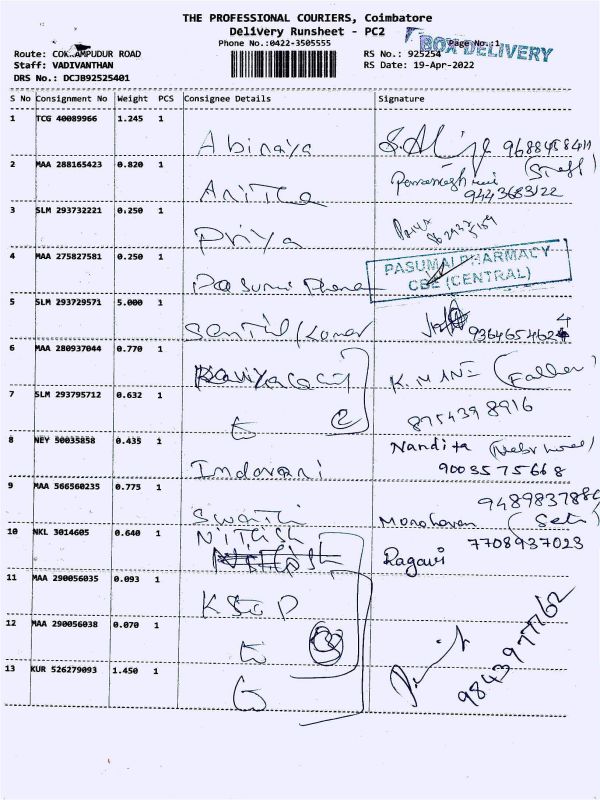 THE PROFESSIONAL COURIERS, Coimbatore
Delivery Runsheet - PC2
Phone No.:0422-3505555
Page No.:1
BOX DELIVERY
Route: ROAD
RS No.: 925254
Staff: VADIVANTHAN
RS Date: 19-Apr-2022
DRS No.: DCJB92525401
S No Consignment No Weight PCS Consignee Details Signature
1 TCG 40089966 1.245 1 Abinaya
2 MAA 288165423 0.820 1 Anitha (Staff)
9443683122
3 SLM 293732221 0.250 1 Priya Priya
4 MAA 275827581 0.250 1 PASUMAI PHARMACY
CBE (CENTRAL)
5 SLM 293729571 5.000 1 Senthil Kumar
6 MAA 280937044 0.770 1 K. MANI (Father)
7 SLM 293795712 0.632 1 8754398916
8 NEY 50035858 0.435 1 Indorani Nandita
9003575668
9 MAA 566560235 0.775 1 Swathi Manoharan
10 NKL 3014605 0.640 1 NITHISH 7708937023
Ragavi
11 MAA 290056035 0.093 1
12 MAA 290056038 0.070 1
13 KUR 526279093 1.450 1 9843977262